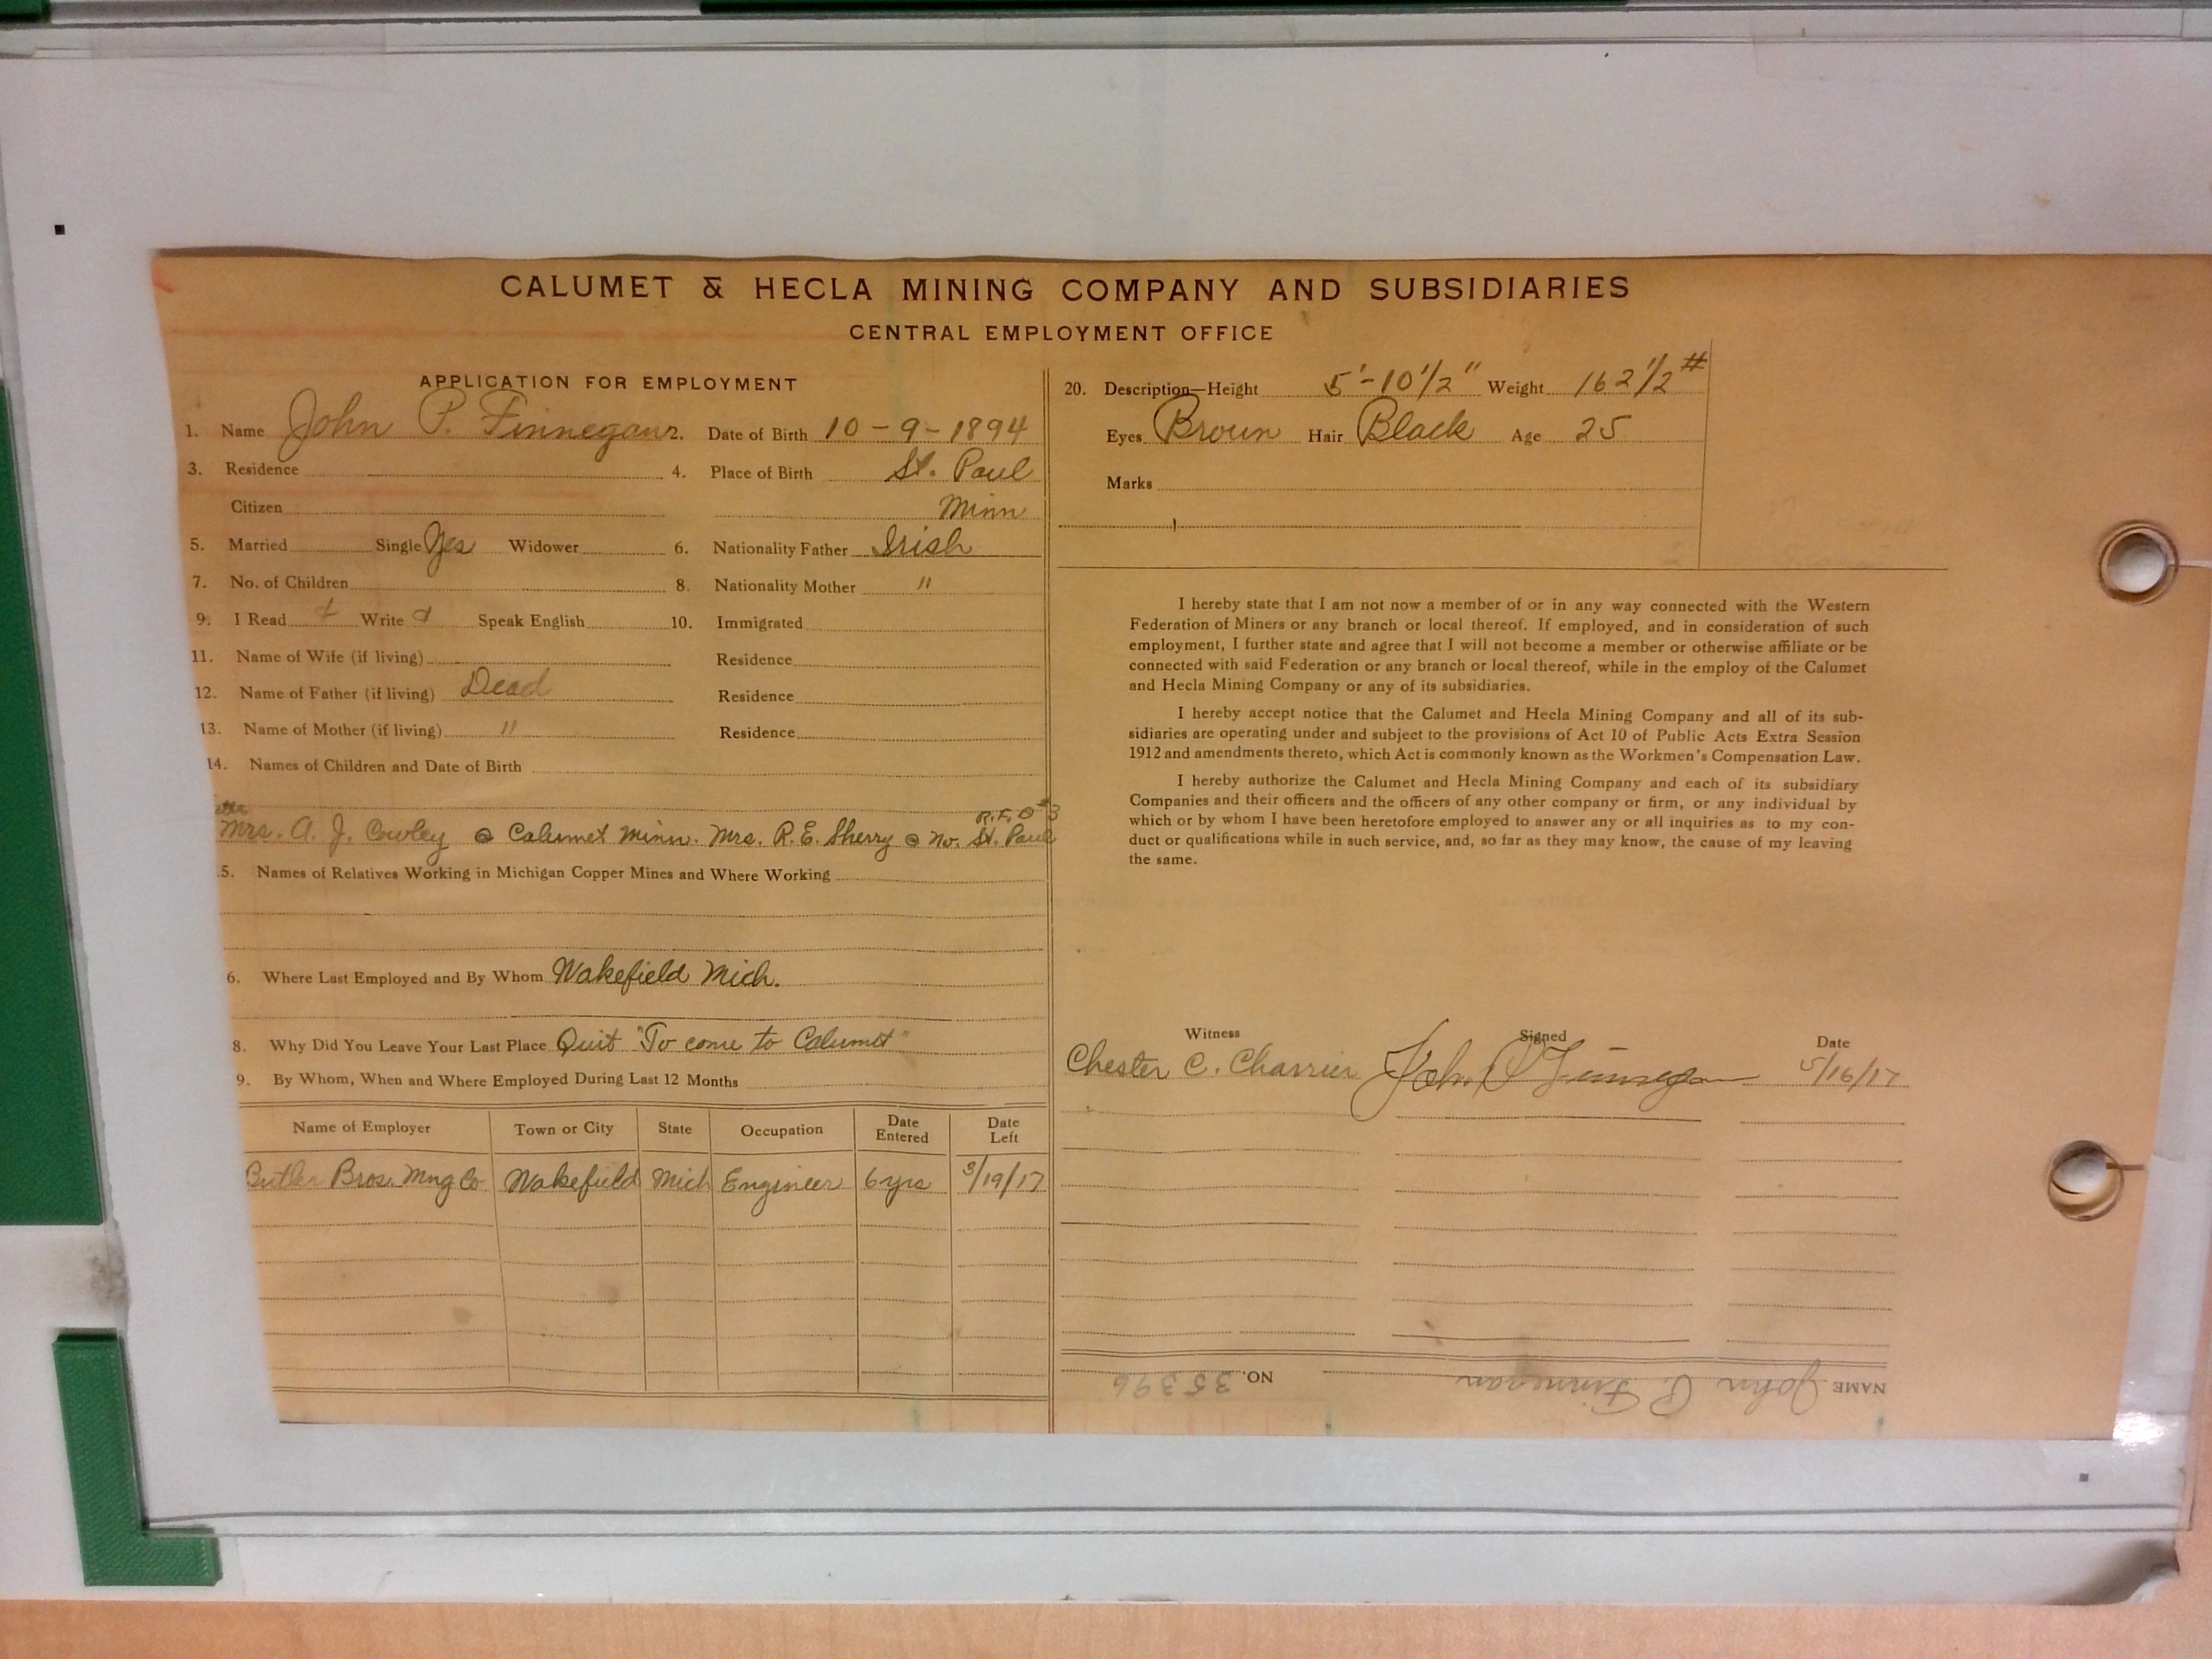 CALUMET & HECLA MINING COMPANY AND SUBSIDIARIES
CENTRAL EMPLOYMENT OFFICE
APPLICATION FOR EMPLOYMENT
1. Name John P. Finnegan 2. Date of Birth 10-9-1894
3. Residence 4. Place of Birth St. Paul
Citizen Minn
5. Married Single Yes Widower 6. Nationality Father Irish
7. No. of Children 8. Nationality Mother "
9. I Read Write Speak English 10. Immigrated
11. Name of Wife (if living) Residence
12. Name of Father (if living) Dead Residence
13. Name of Mother (if living) " Residence
14. Names of Children and Date of Birth
R.F.D #3
Mrs. A. J. Cowley @ Calumet Minn. Mrs. R.E. Sherry @ No. St. Paul
5. Names of Relatives Working in Michigan Copper Mines and Where Working
6. Where Last Employed and By Whom Wakefield Mich.
8. Why Did You Leave Your Last Place Quit "To come to Calumet"
9. By Whom, When and Where Employed During Last 12 Months
Name of Employer Town or City State Occupation Date Entered Date Left
Butler Bros. Mng Co Wakefield Mich Engineer 6 yrs 3/19/17
20. Description—Height 5'-10 1/2" Weight 162 1/2 #
Eyes Broun Hair Black Age 25
Marks
I hereby state that I am not now a member of or in any way connected with the Western
Federation of Miners or any branch or local thereof. If employed, and in consideration of such
employment, I further state and agree that I will not become a member or otherwise affiliate or be
connected with said Federation or any branch or local thereof, while in the employ of the Calumet
and Hecla Mining Company or any of its subsidiaries.
I hereby accept notice that the Calumet and Hecla Mining Company and all of its sub-
sidiaries are operating under and subject to the provisions of Act 10 of Public Acts Extra Session
1912 and amendments thereto, which Act is commonly known as the Workmen's Compensation Law.
I hereby authorize the Calumet and Hecla Mining Company and each of its subsidiary
Companies and their officers and the officers of any other company or firm, or any individual by
which or by whom I have been heretofore employed to answer any or all inquiries as to my con-
duct or qualifications while in such service, and, so far as they may know, the cause of my leaving
the same.
Witness Signed Date
Chester C. Charrier John P Finnegan 5/16/17
NAME John P. Finnegan NO. 35396